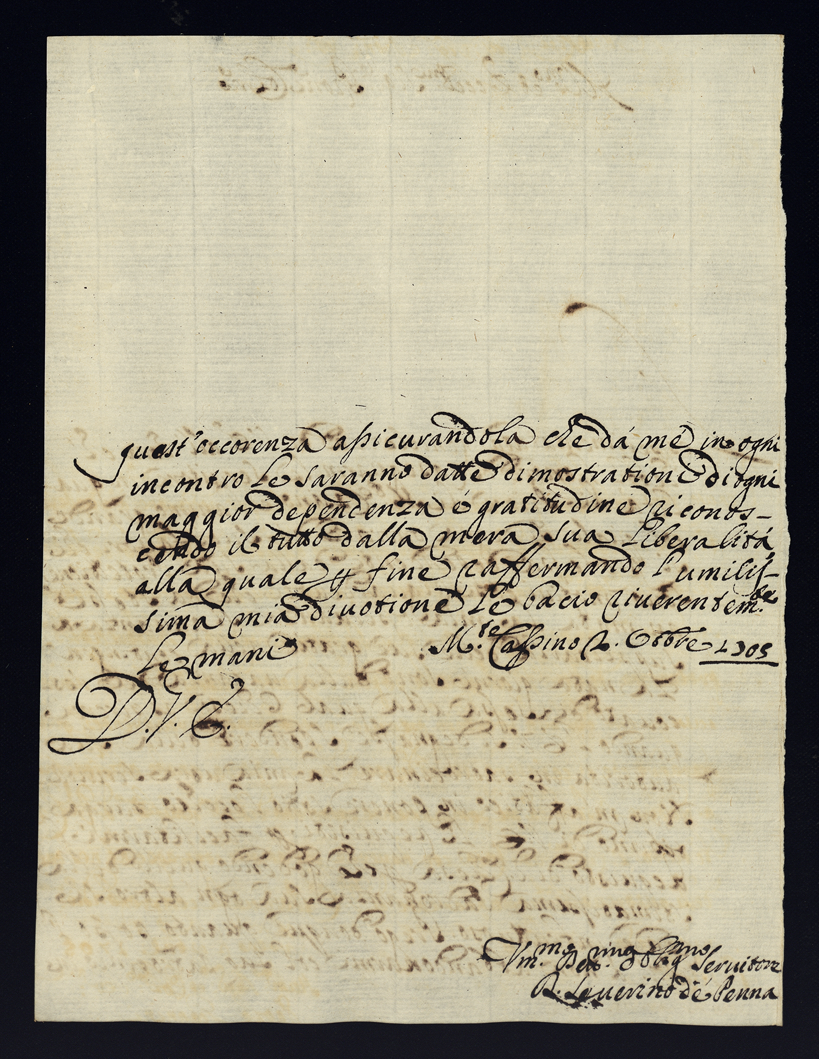 quest'occorenza assicurandola che dá me in ogni
incontro Le saranno datte dimostratione di ogni
maggior dependenza é gratitudine riconos-
cendo il tutto dalla mera sua Liberalitá,
alla quale fine raffermando l'umilis-
sima mia divotione Le bacio riverentem.te
Le mani M.te Cassino 2. Ottbre 1705
D. V. E.
Vm.mo Dev.mo Oblig.mo Servitore
D. Severino dé Penna